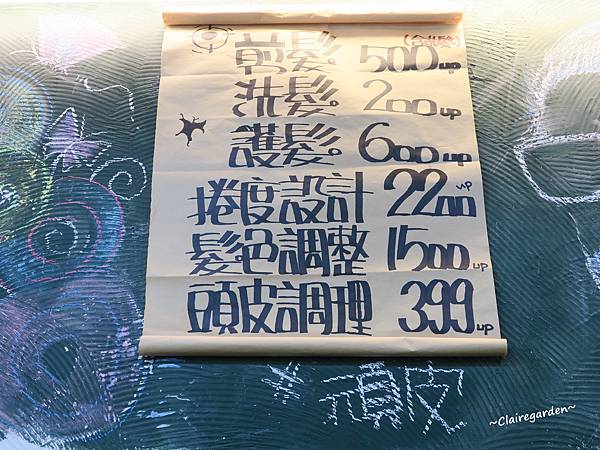 (含洗髮)
剪髮。 500up
洗髮。 200up
護髮。 600up
捲度設計 2200up
髮色調整 1500up
頭皮調理 399up
頑皮
~Clairegarden~